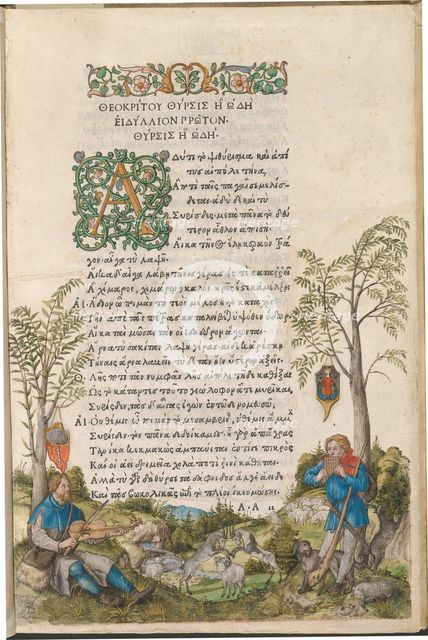 ΘΕΟΚΡΙΤΟΥ ΘΥΡΣΙΣ Ἢ ᾨΔΗ
ΕΙΔΥΛΛΙΟΝ ΠΡΩΤΟΝ.
ΘΥΡΣΙΣ Ἢ ᾨΔΗ.
Αδύ τι τὸ ψιθύρισμα καὶ ἁ πί
τυς αἰπόλε τήνα,
Ἃ ποτὶ ταῖς παγαῖσι μελίσ-
δεται· ἁδὺ δὲ καὶ τὺ
Συρίσδες· μετὰ πᾶνα τὸ δεύ
τερον ἆθλον ἀποισῇ.
Αἴκα τῆνος ἕλῃ κεραὸν τρά
γον, αἶγα τὺ λαψῇ.
Αἴκα δ' αἶγα λάβῃ τῆνος γέρας ἐς τὲ καταρρεῖ
Ἁ χίμαρος, χιμάρω καλὸν κρῆς ἔστε κ' ἀμέλξῃς
ΑΙ· Ἅδιον ὦ ποιμὰν τὸ τεὸν μέλος ἢ τὸ καταχὲς
Τῆν' ἀπὸ τᾶς πέτρας καταλείβεται ὑψόθεν ὕδωρ.
Αἴκα ταὶ μῶσαι τὰν οἴιδα δῶρον ἄγωνται,
Ἄρνα τὺ σακίταν λαψῇ γέρας· αἰ δέ κ' ἀρέσκῃ
Τήναις ἄρνα λαβεῖν, τὺ δὲ τὰν ὄϊν ὕστερον ἀξεῖς.
Θ· Λῇς ποτὶ τᾶν νυμφᾶν, λῇς αἰπόλε τῇδε καθίξας
Ὡς τὸ κάταντες τοῦτο γεώλοφον ᾇτε μυρῖκαι,
Συρίσδεν; τὰς δ' αἶγας ἐγὼν ἐν τῷδε νομευσῶ.
ΑΙ· Οὐ θέμις ὦ ποιμὰν τὸ μεσαμβρινὸν, οὐ θέμις ἄμμιν
Συρίσδεν· τὸν πᾶνα δεδοίκαμες· ἦ γὰρ ἀπ' ἄγρας
Τανίκα κεκμακὼς ἀμπαύεται ἐντὶ πικρὸς
Καί οἱ ἀεὶ δριμεῖα χολὰ ποτὶ ῥινὶ κάθηται.
Ἀλλὰ τὺ γὰρ δὴ θύρσι τὰ δάφνιδος ἄλγεα εἶδες
Καὶ τᾶς βωκολικᾶς ἐπὶ τὸ πλέον ἵκεο μώσας.
Α·Α ii